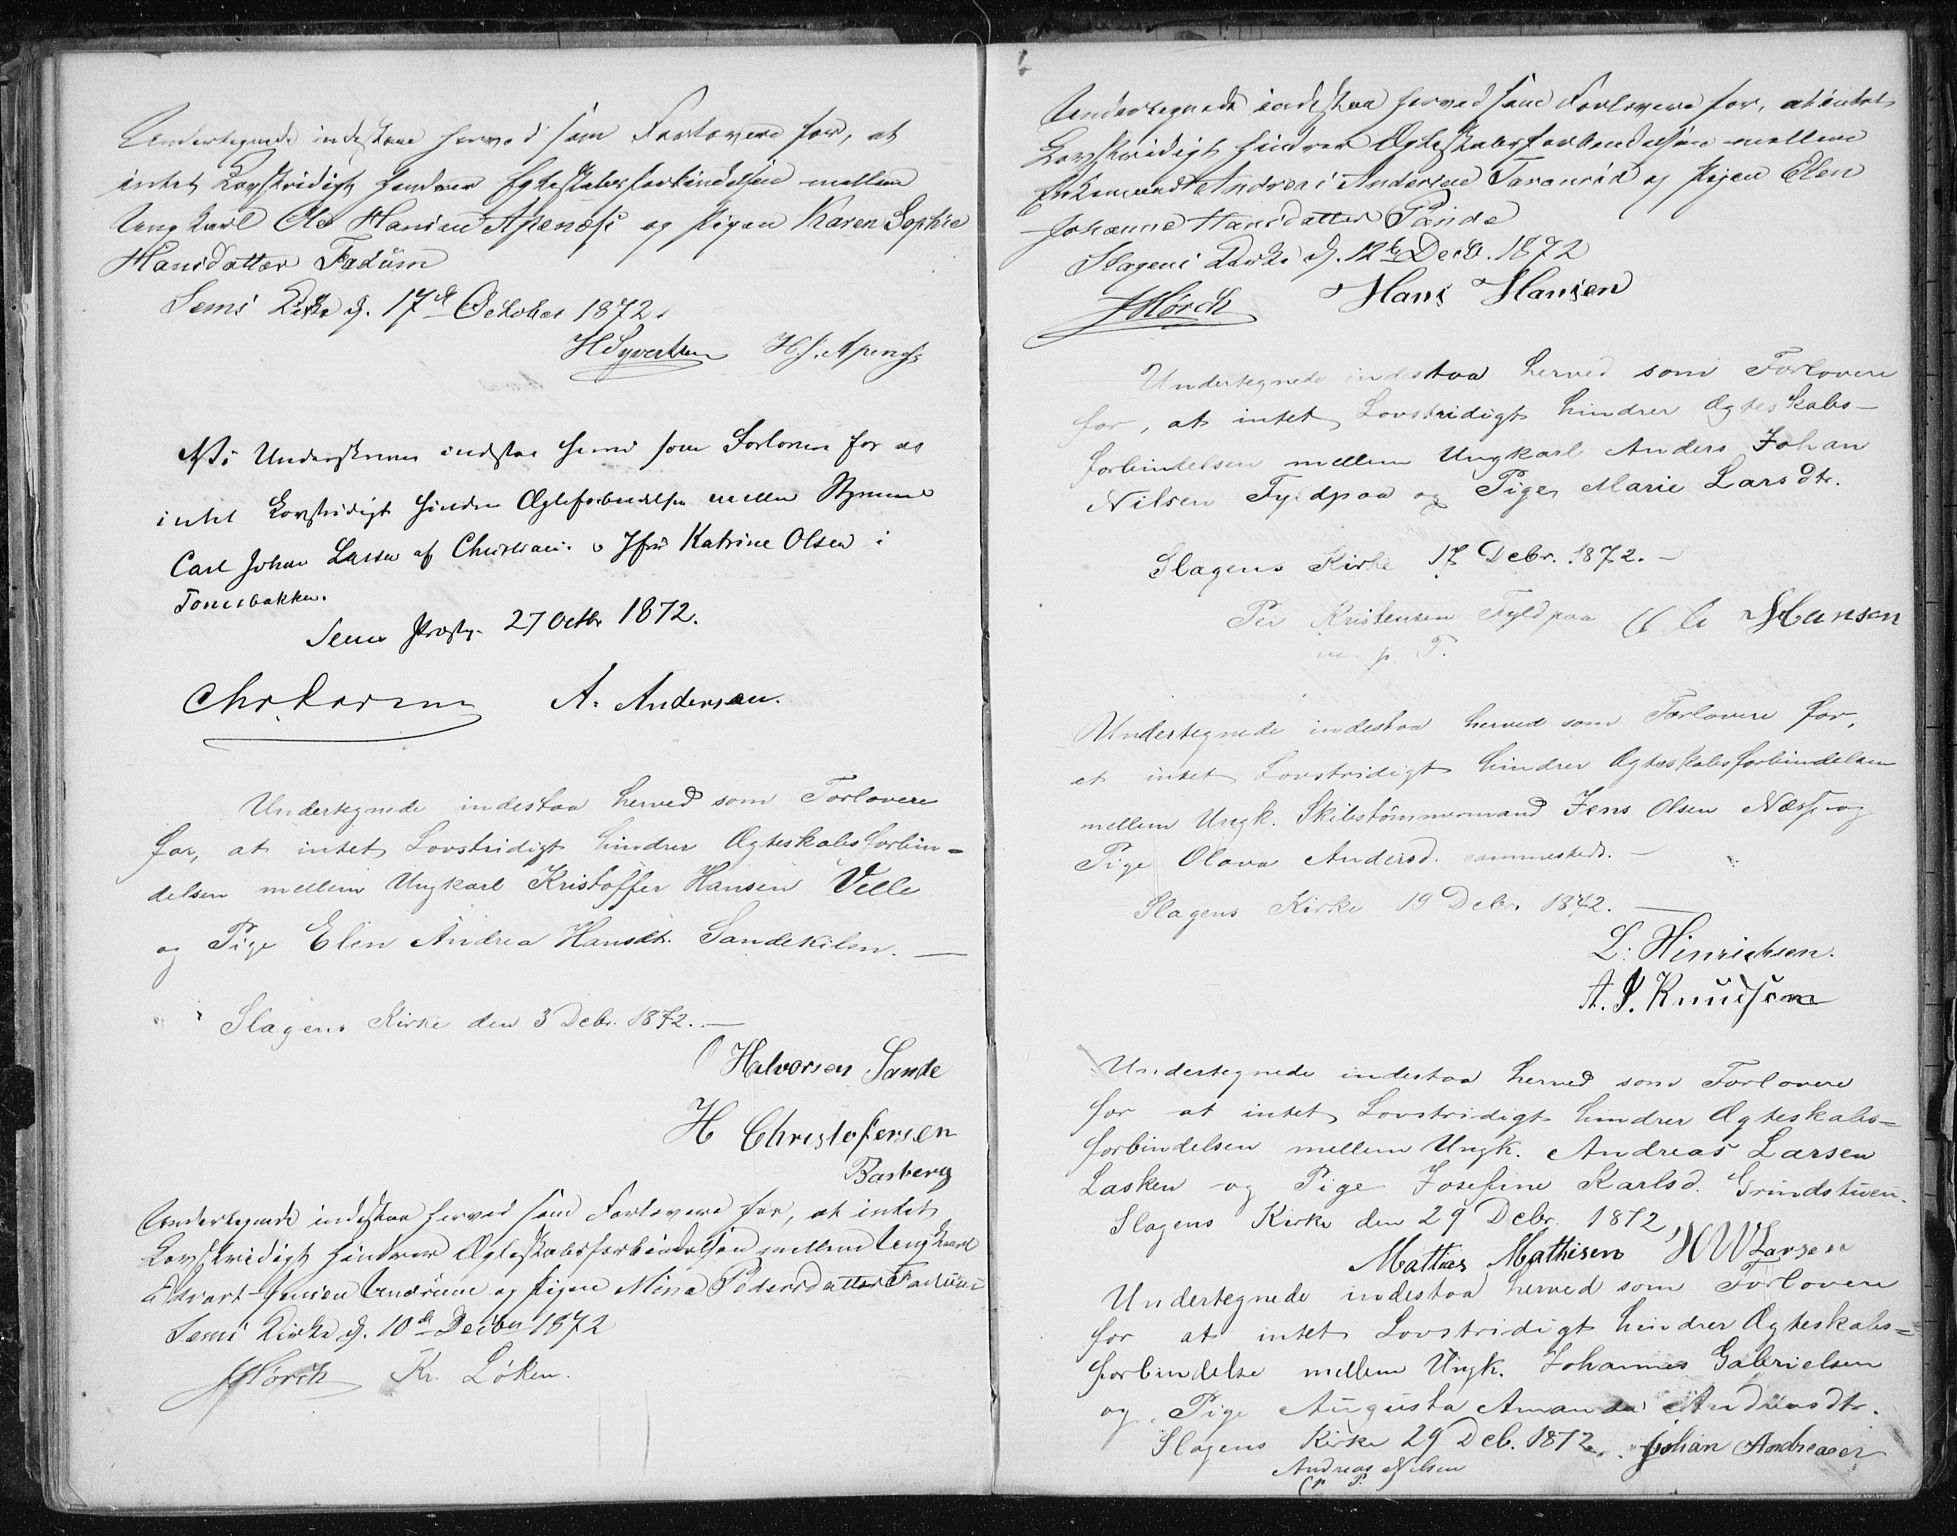 Undertegnede indestaae herved som Forlovere for, at
intet Lovstridigt hindrer Egteskabsforbindelsen mellem
Ungkarl Ole Hansen Apenæss og Pigen Karen Sophie
Hansdatter Fadum
Sems Kirke d. 17de October 1872.
HSyvertsen H J. Apenæs
Vi Underskrevne indstaa herved som Forlovere for at
intet Lovstridigt hindrer Ægteforbindelse mellem Styrmand
Carl Johan Larsen af Christiani. o Jfr Katrine Olsen i
Tonsbakken.
Sems Præsteg. 27 Octbr 1872.
Chr. Larsen A. Andersen.
Undertegnede indestaa herved som Forlovere
for, at intet Lovstridigt hindrer Ægteskabsforbin=
delsen mellem Ungkarl Kristoffer Hansen Velle
og Pige Elen Andrea Hansdt. Sandekilen. —
Slagens Kirke den 3 Debr. 1872. —
O Halvorsen Sande
H Christofersen
Basberg
Undertegnede indestaa herved som Forlovere for, at intet
Lovstridigt hindrer Ægteskabsforbindelsen mellem Ungkarl
Edvart Jensen og Pigen Mina Pedersdatter Fadum
Sems Kirke d. 10de Decber 1872
Hörch Kr. Løken.
Undertegnede indestaa herved som Forlovere for, at intet
Lovstridigt hindrer Ægteskabsforbindelsen mellem
Enkemand Andreas Andersen Taranrød og Pigen Elen
Johanne Hansdatter Rände
Slagens Kirke d. 12te Decb. 1872
Hörch Hans Hansen
Undertegnede indestaa herved som Forlovere
for, at intet Lovstridigt hindrer Ægteskabs-
forbindelsen mellem Ungkarl Anders Johan
Nilsen Fyldpaa og Pige Marie Larsdtr.
Slagens Kirke 17 Debr. 1872. —
Per Kristensen Fyldpaa Hansen
m. p. P.
Undertegnede indestaa herved som Forlovere for,
at intet Lovstridigt hindrer Ægteskabsforbindelsen
mellem Ungk. Skibstømmermand Jens Olsen Næss og
Pige Olava Andersd. sammesteds. —
Slagens Kirke 19 Debr. 1872. —
L. Hinrichsen.
A. J. Knudsen
Undertegnede indestaa herved som Forlovere
for at intet Lovstridigt hindrer Ægteskabs=
forbindelsen mellem Ungk. Andreas Larsen
Lasken og Pige Josefine Karlsd. Grindstuen.
Slagens Kirke den 29 Debr. 1872
Mattias Mathisen H W Larsen
Undertegnede indestaa herved som Forlovere
for at intet Lovstridigt hindrer Ægteskabs=
forbindelse mellem Ungk. Johannes Gabrielsen
og Pige Augusta Amanda Andrinsdtr.
Slagens Kirke 29 Deb. 1872. Johan Andreasen
Andreas Nilsen